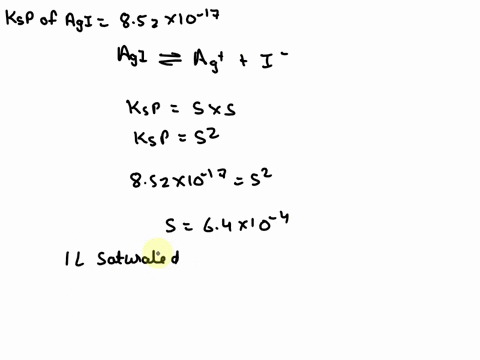 KsP of AgI = 8.52 ×10⁻¹⁷
AgI ⇌ Ag⁺ + I⁻
KsP = S×S
KsP = S²
8.52 ×10⁻¹⁷ = S²
S = 6.4 ×10⁻⁴
1L Saturated